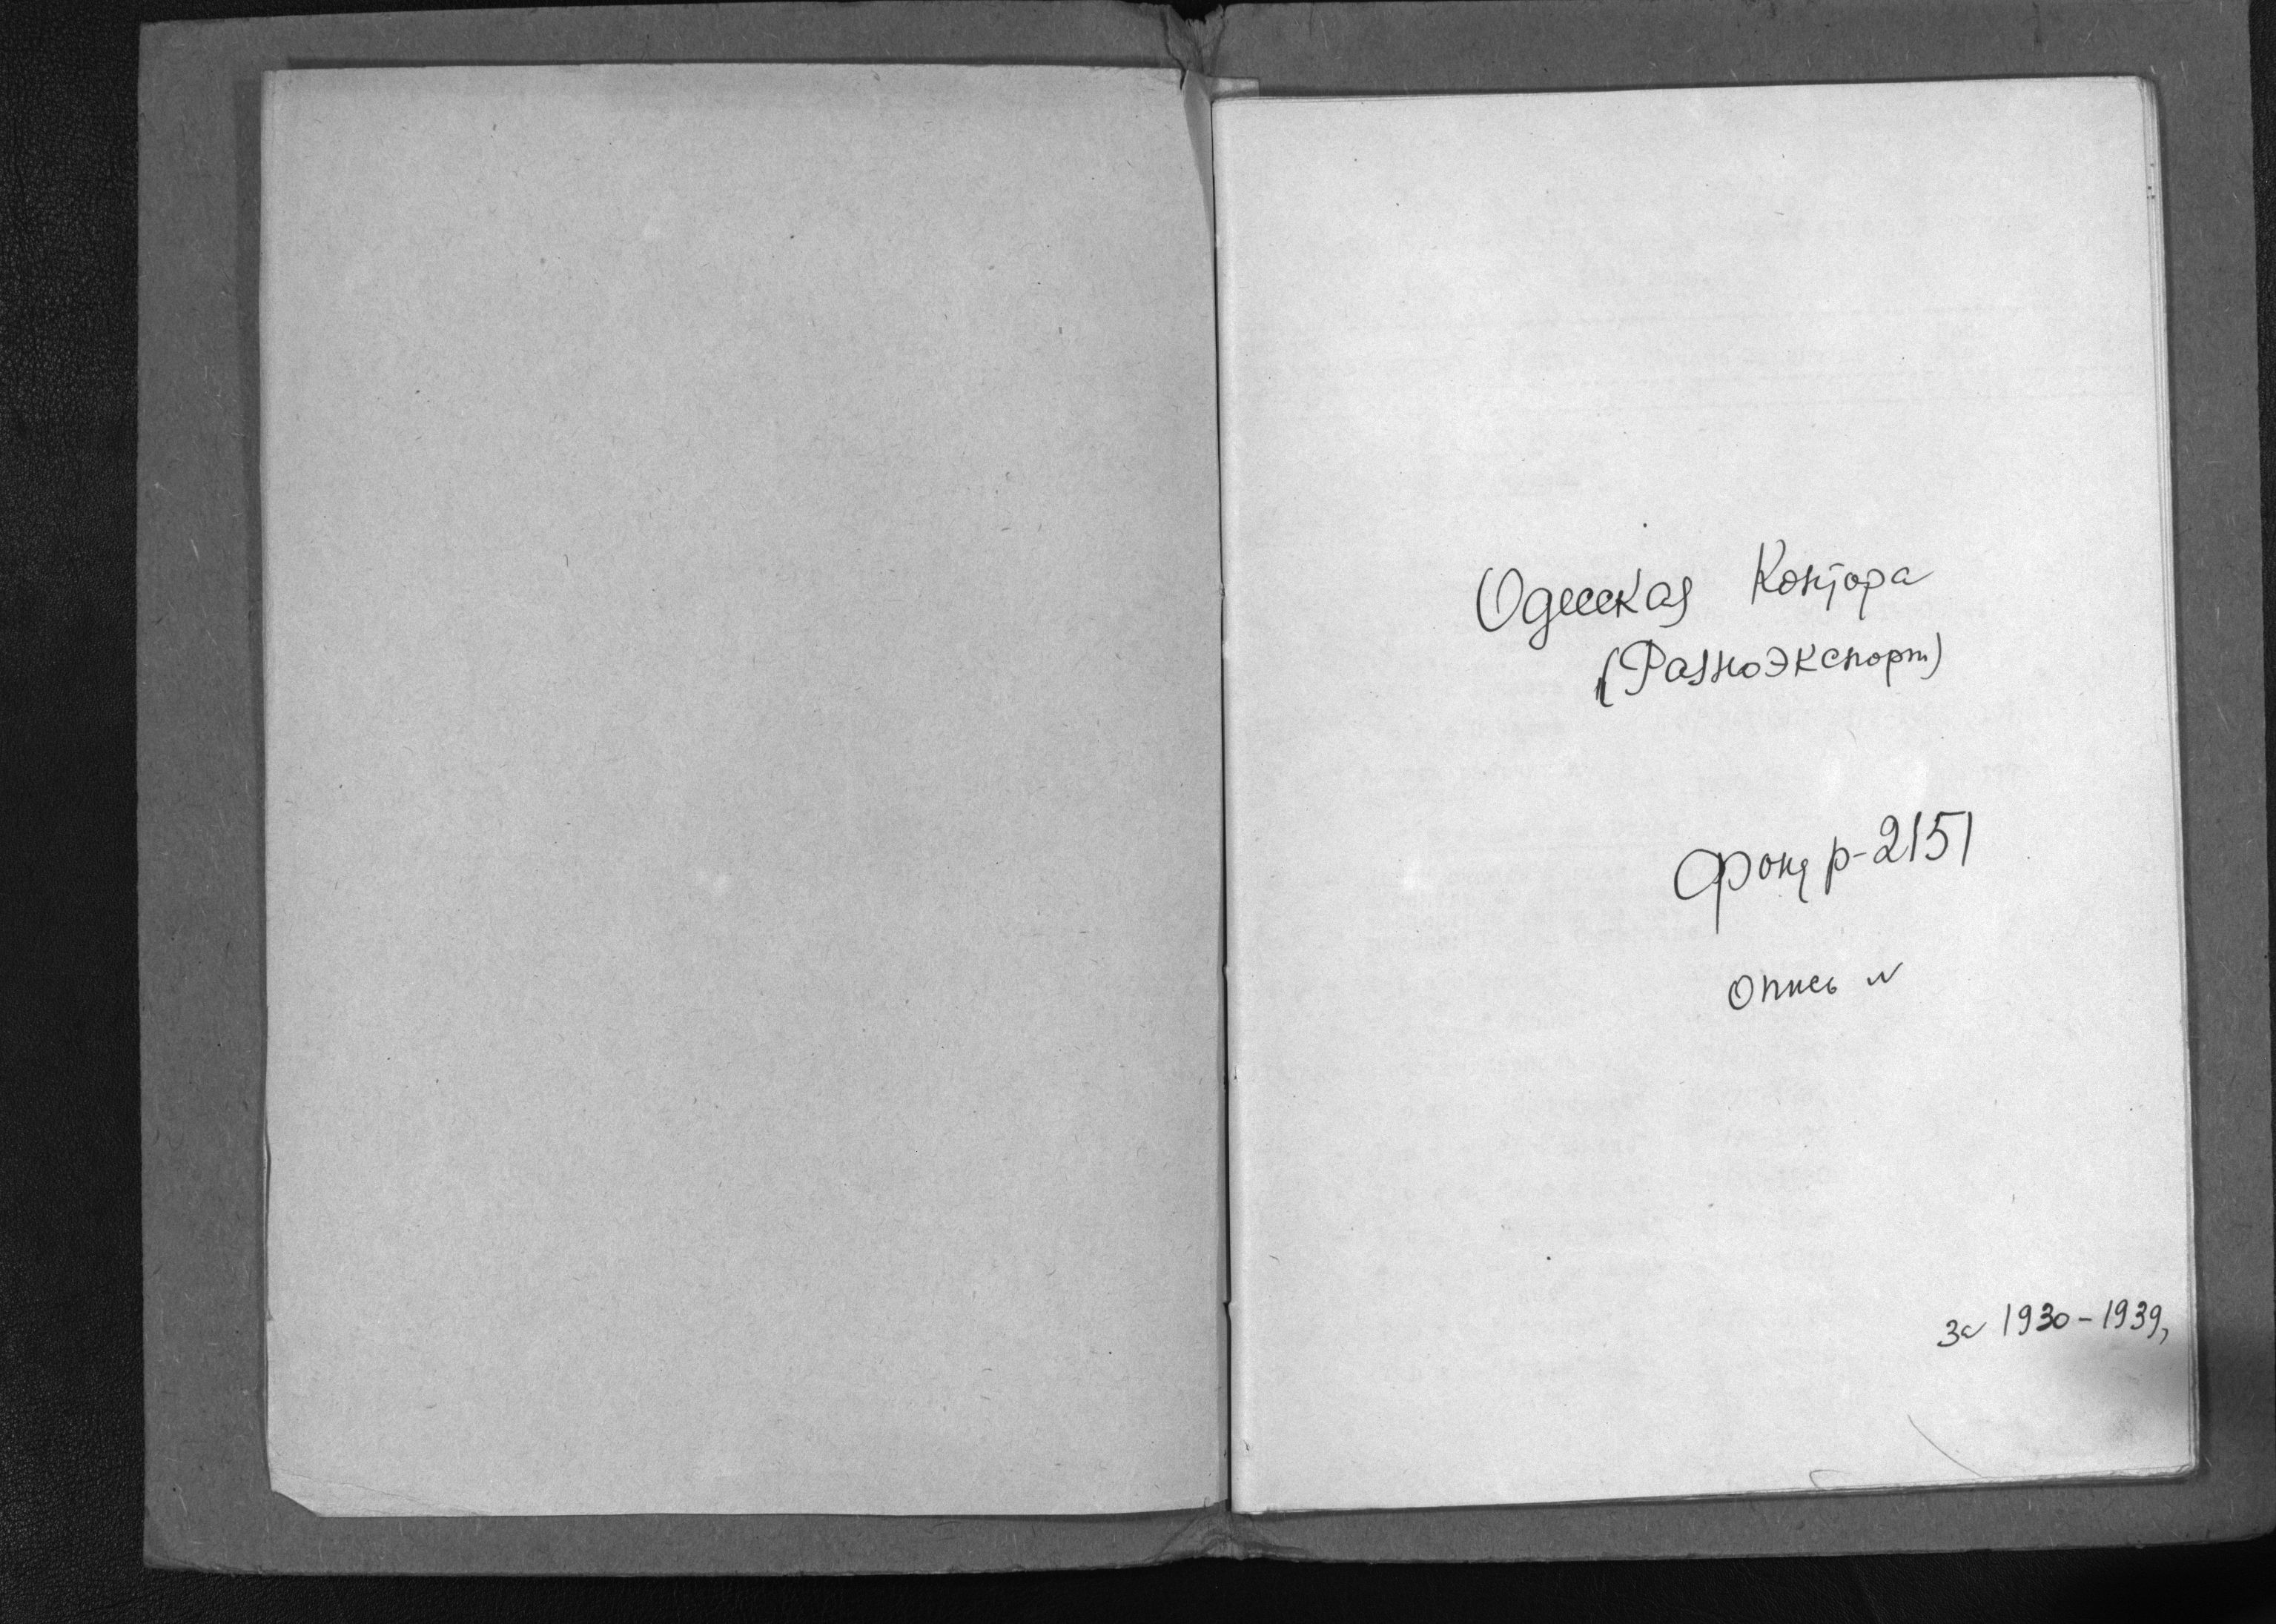 Одесская Контора
(Разноэкспорт)
Фонд р-2151
Опись №
за 1930-1939,